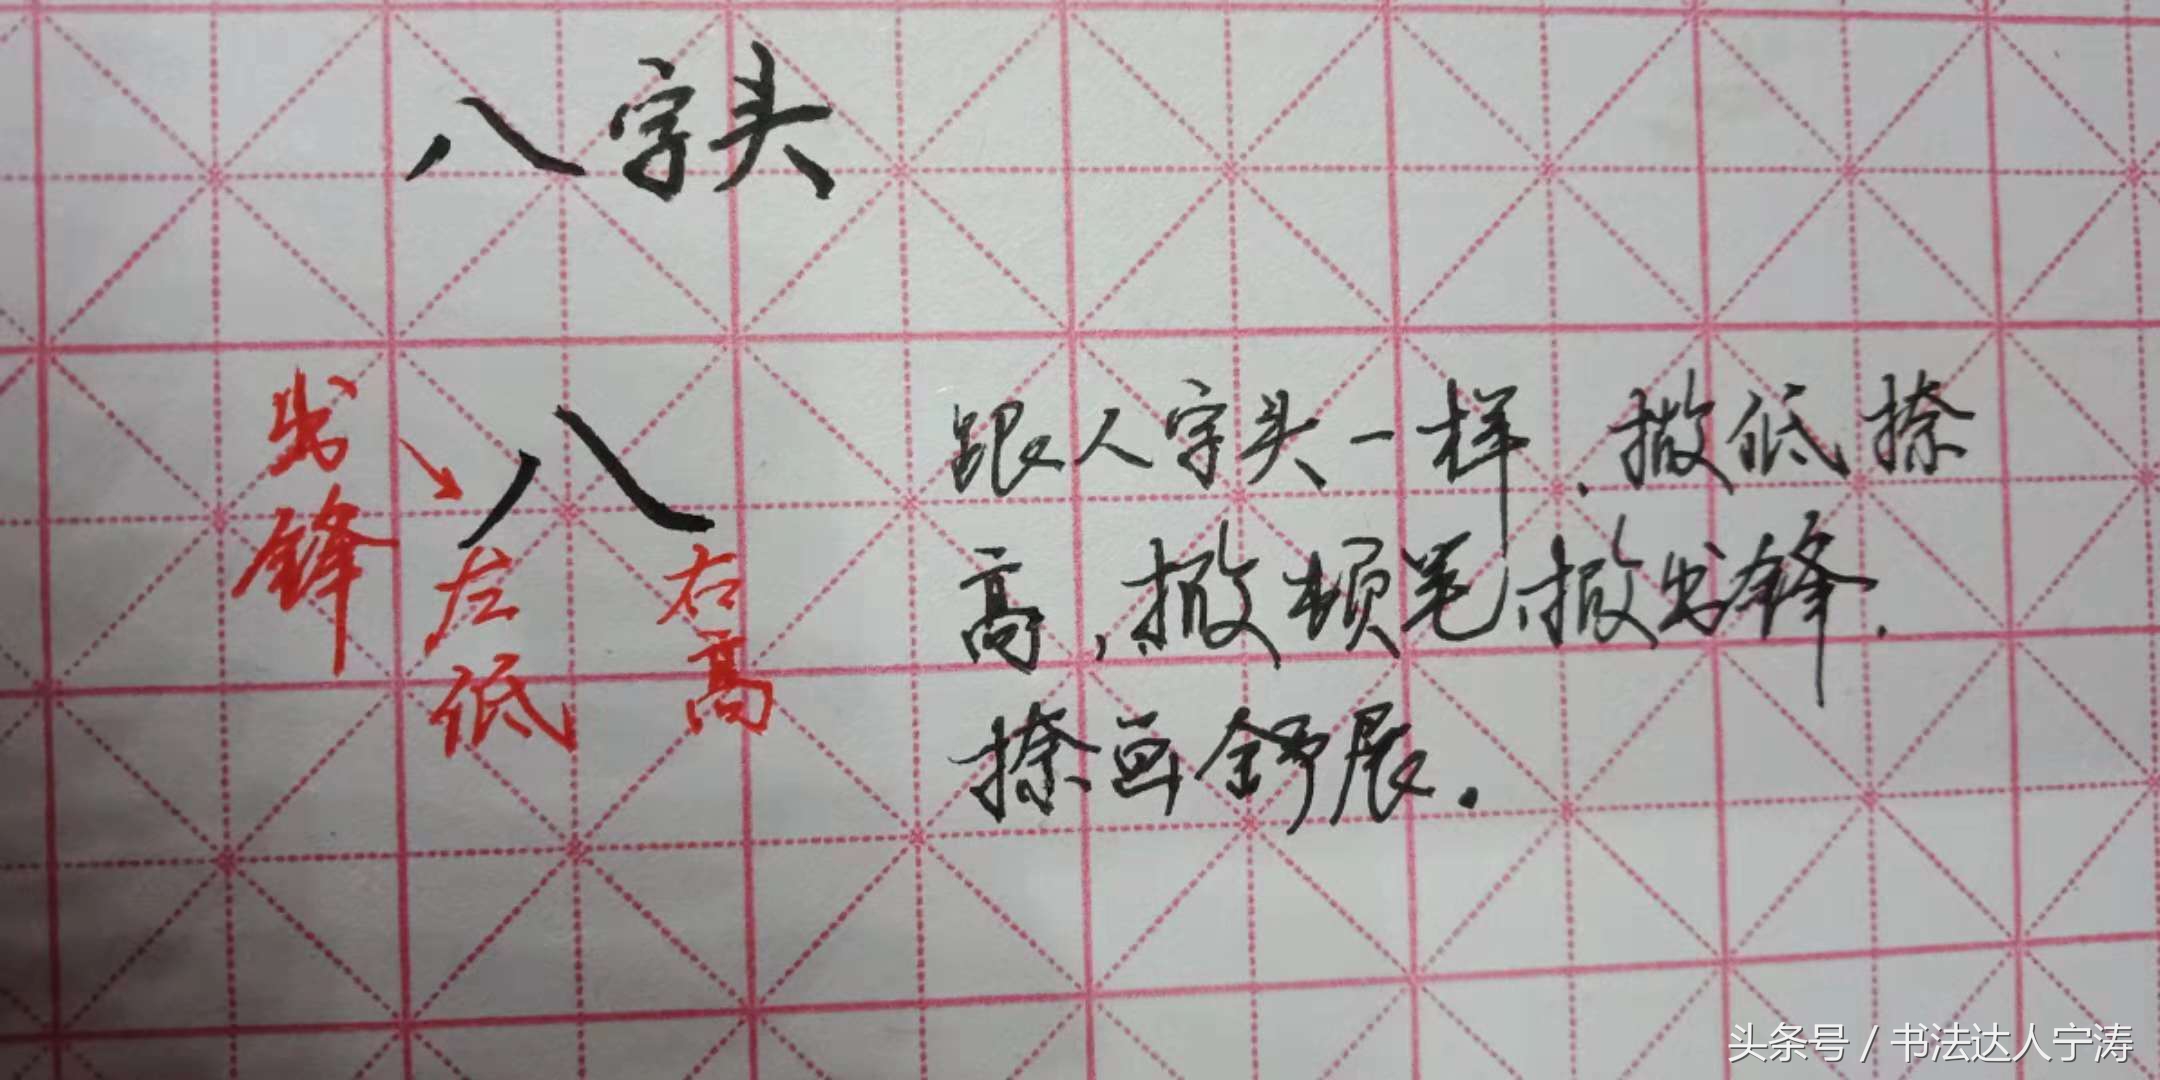 八字头
出锋
左低
右高
跟人字头一样.撇低捺
高,撇顿笔,撇出锋.
捺画舒展.
头条号 / 书法达人宁涛